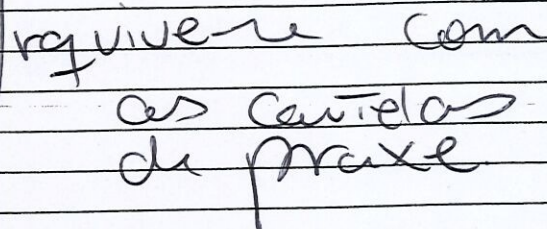 rquive-se com
as cautelas
de praxe